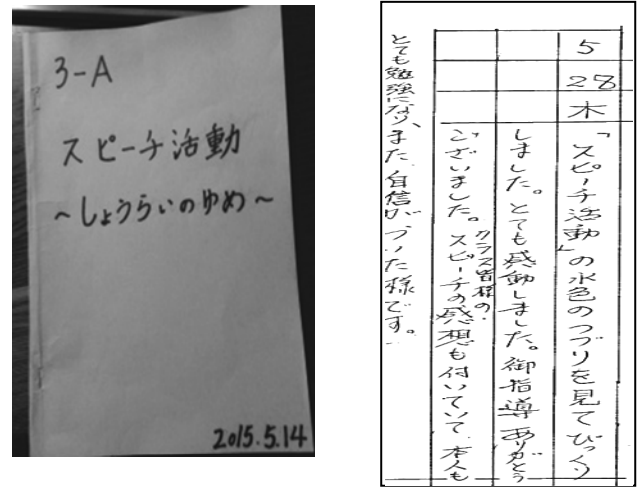 3-A
スピーチ活動
～しょうらいのゆめ～
2015.5.14
5
28
木
「スピーチ活動」の水色のつづりを見てびっくり
しました。とても感動しました。御指導ありがとう
ございました。スピーチの感想も付いていて、本人も
クラス皆様の
とても勉強になり、また、自信がついた様です。